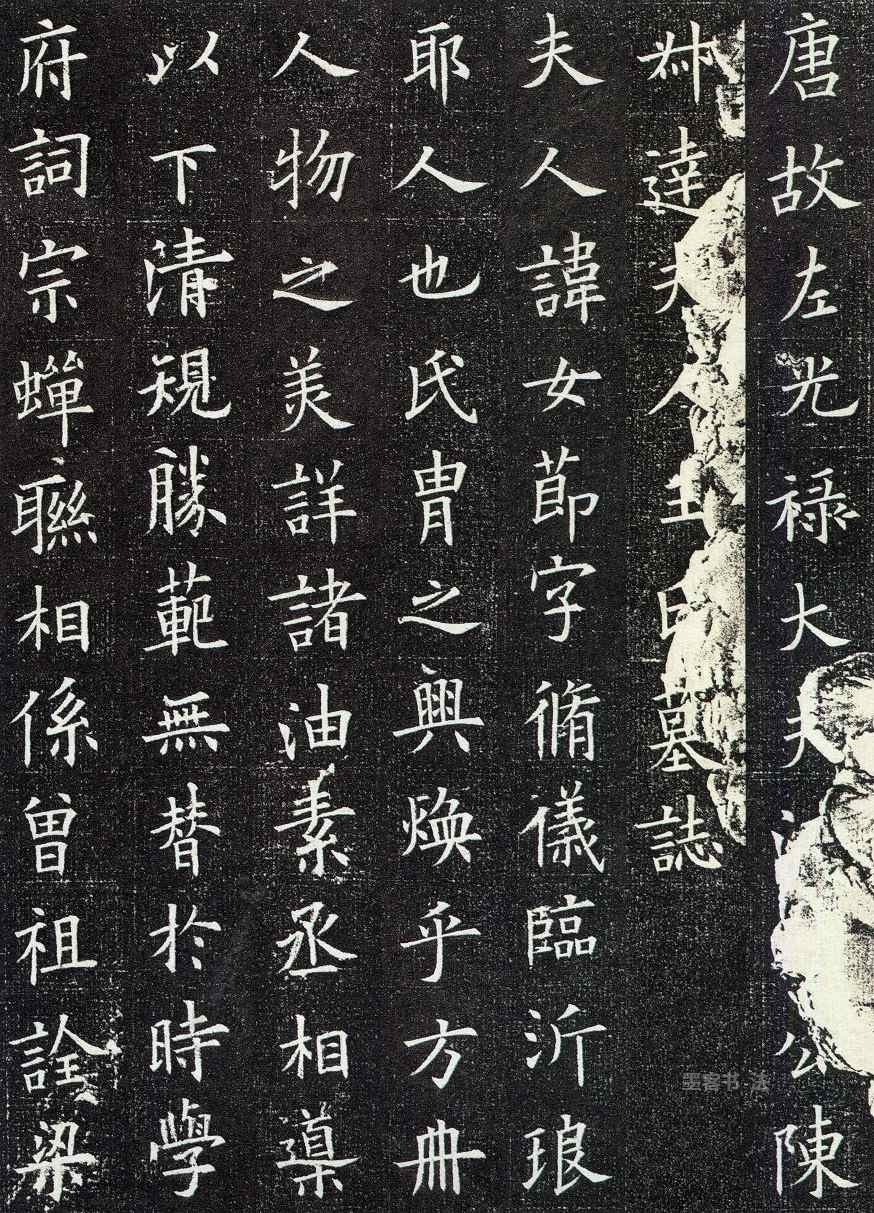 唐故左光禄大夫 公陳
叔達夫人王 墓誌
夫人諱女節字脩儀臨沂琅
耶人也氏胄之興煥乎方冊
人物之美詳諸油素丞相導
以下清規勝範無替於時學
府詞宗蟬聯相係曾祖詮梁
墨客书法